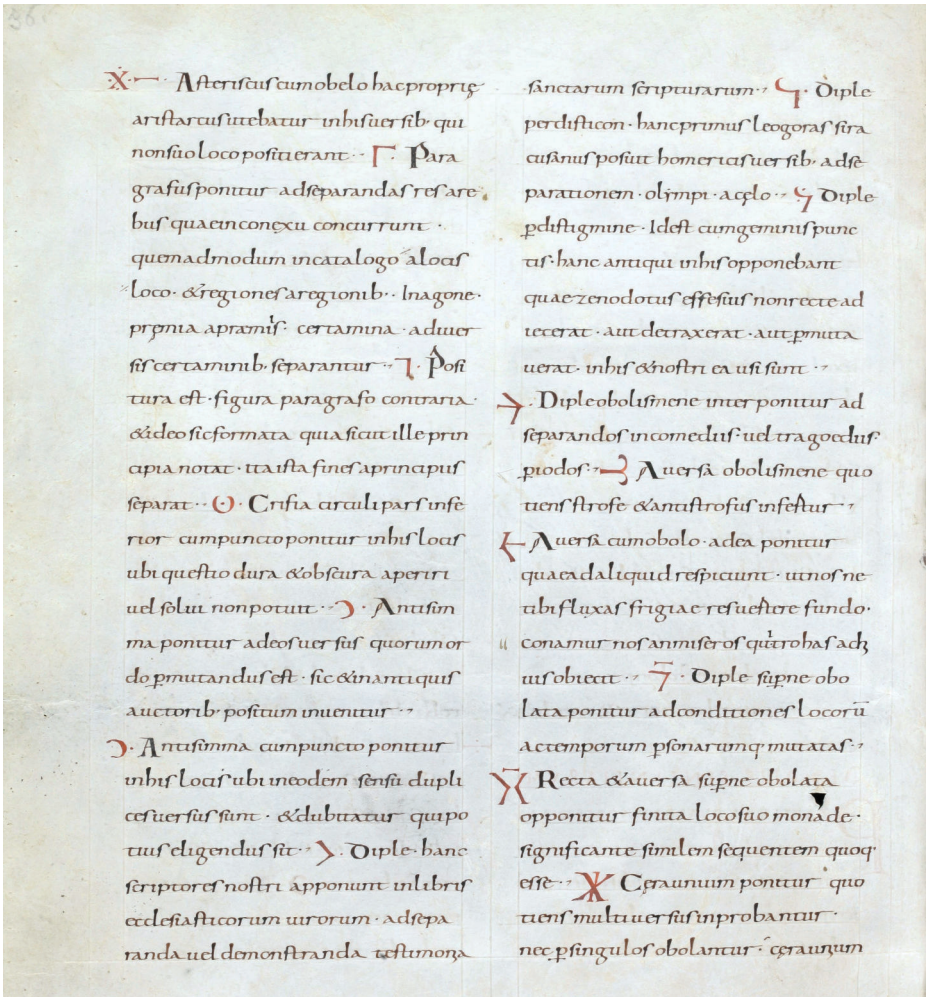 Asteriscus cum obelo hac propriẹ
aristarcus utebatur inhis uersib· qui
non suo loco positi erant · Γ · Para
grafus ponitur adseparandas res are
bus quae in conęxu concurrunt ·
quemadmodum incatalogo alocis
loco · & regiones aregionib · · In agone ·
pręmia apramiis · certamina · adiuer
sis certaminib· separantur · ⁊ · Posi
tura est · figura paragrafo contraria ·
& ideo sic formata quia sicut ille prin
cipia notat · ita ista fines aprincipiis
separat · · Crifia circuli pars infe
rior cum puncto ponitur inhis locis
ubi questio dura & obscura aperiri
uel solui non potuit · Ɔ · Antisim
ma ponitur adeos uersus quorum or
do ꝑmutandus est · sic & inantiquis
auctorib· positum inuenitur ·
Ɔ · Antisimma cum puncto ponitur
inhis locis ubi ineodem sensu dupli
ces uersus sunt · & dubitatur qui po
tius eligendus sit · Diple · hanc
scriptores nostri apponunt inlibris
ecclesiasticorum uirorum · adsepa
randa uel demonstranda testimonia
sanctarum scripturarum · Diple
perdisticon · hanc primus leogoras sira
cusanus posuit homericis uersib· adse
parationem · olympi · acęlo · Diple
ꝑdistigmine · Idest cum geminis punc
tis · hanc antiqui inhis opponebant
quae zenodotus effesius non recte ad
iecerat · aut detraxerat · aut ꝑmuta
uerat · inhis & nostri ea usi sunt ·
· Diple obolismene interponitur ad
separandos incomediis · uel tragoediis ·
ꝑiodos · Auersa obolismene quo
tiens strofe & antistrofus infertur ·
Auersa cum obolo · adea ponitur
quae ad aliquid respiciunt · ut nos ne
tibi fluxas frigiae res uertere fundo ·
conamur nos anmiseros qui troas ach
iuis obiecit · · Diple suꝑne obo
lata ponitur adconditiones locorū
ac temporum ꝑsonarumq· mutatas ·
Recta & auersa suꝑne obolata
opponitur finita loco suo monade ·
significante similem sequentem quoq·
esse · Cęraunium ponitur quo
tiens multi uersus inprobantur ·
nec ꝑsingulos obolantur · cęraunium